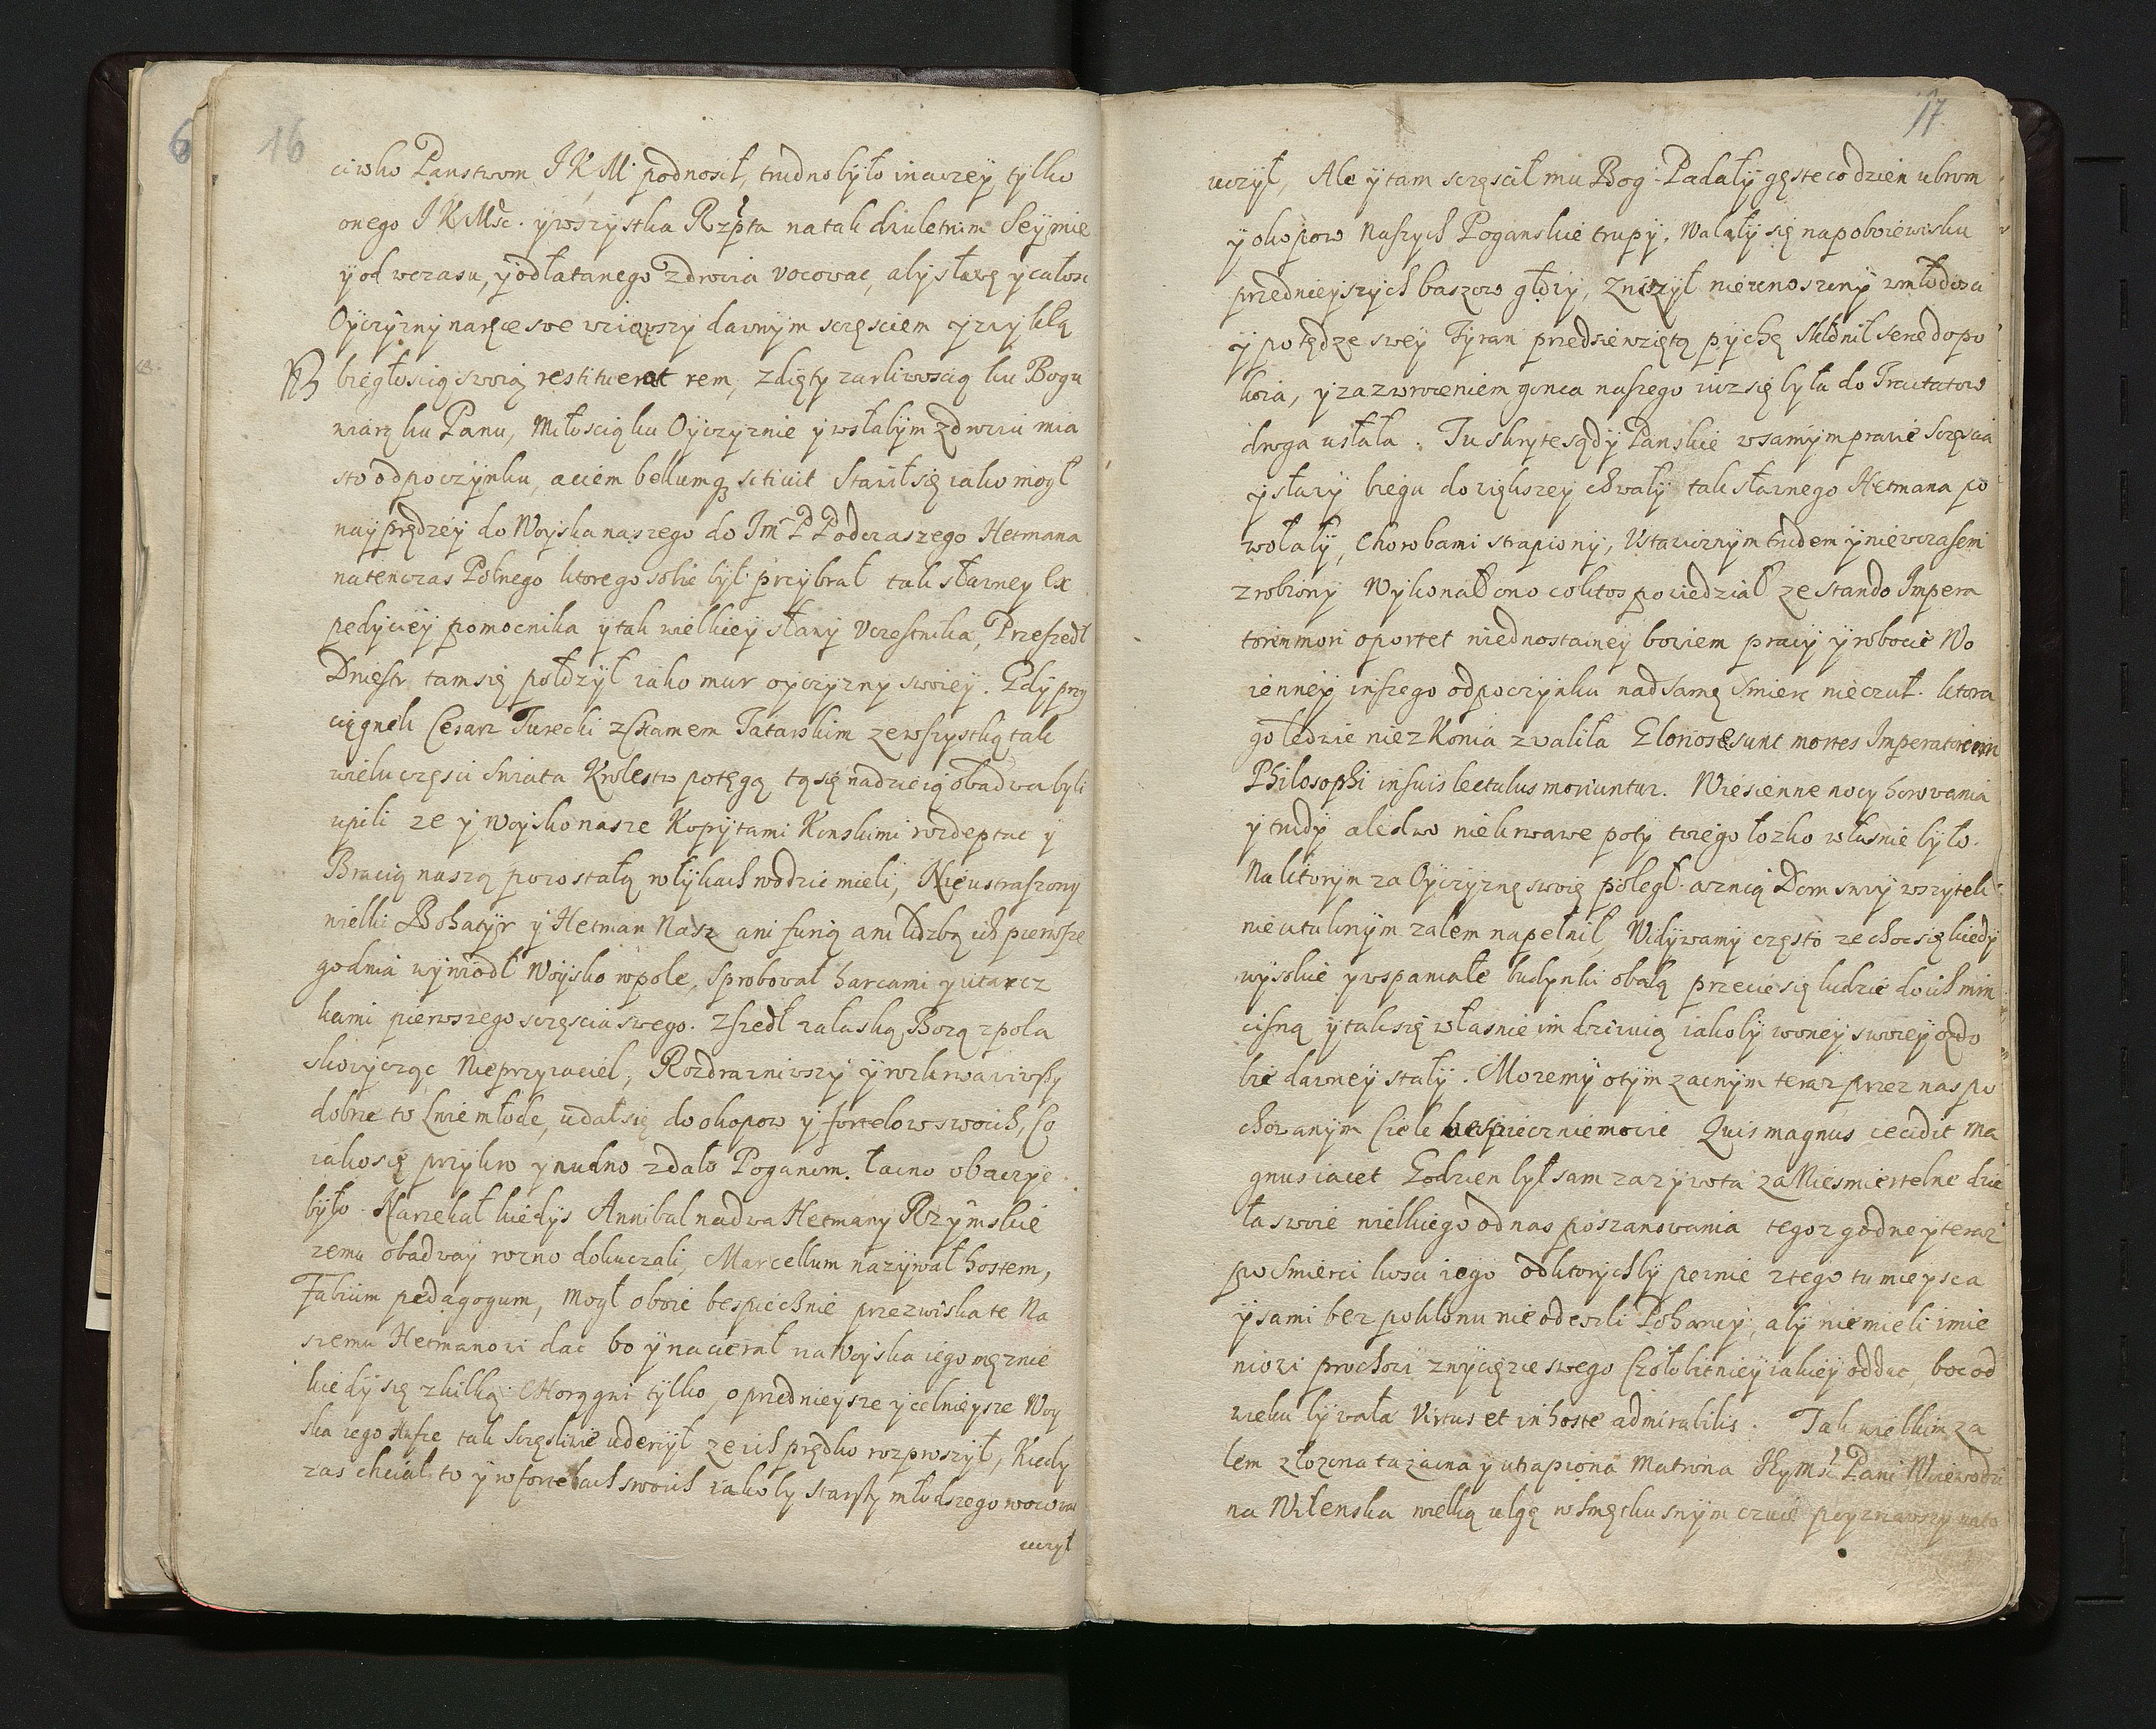 16
ciwko Panstwom I K M podnosił, trudno było inaczey tylko
onego I K Msc. y wszystka Rzpta na tak dziuletnim Seymie
y od wczasu, y odłatanego zdrowia vocowac, aby sławę y całosc
Oyczyzny na ręce swe wziąwszy dawnym sczęsciem y zwykłą
biegłoscią swoią restituerat rem, zdięty zarliwoscią ku Bogu
wiarą ku Panu, Miłoscią ku Oyczyznie y w słabym zdrowiu mia
sto odpoczynku, aciem bellumq3 sitivit stawił się iako mogł
nayprędzey do Woyska naszego do Im P Podczaszego Hetmana
natenczas Polnego ktorego sobie był przybrał tak sławney Ex
pedycyey pomocnika y tak wielkiey sławy Vczestnika, Przeszedł
Dniestr tam się położył iako mur oyczyzny swoiey. Gdy przy
ciągnęli Cesarz Turecki z Chamem Tatarskim ze wszystką tak
wielu częsci swiata Krolestw potęgą tą się nadzieią obadwa byli
upili ze y Woysko nasze Kopytami Konskimi rozdeptac y
Bracią naszą pozostałą w łykach wodzic mieli, Nieustraszony
wielki Bohatyr y Hetman Nasz ani furią ani liczbą ich pierwsze
godnia wywiodł Woysko w pole, sprobował harcami y utarcz
kami pierwszego sczęscia swego. Zszedł załaską Bozą z pola
skowycząc Nieprzyiaciel, Rozdrazniwszy y wzkrwawiwszy
dobrze to Lwie młode, udał się do okopow y fortelow swoich, Co
iako się przykro y nudno zdało Poganom. łacno obaczyc
było. Narzekał kiedys Annibal na dwa Hetmany Rzymskie
zemu obadway rozno dokuczali, Marcellum nazywał hostem,
Fabium pedagogum, mogł oboie bespiecznie przezwiska te Na
szemu Hetmanowi dac bo y nacierał na Woyska iego męznie
kiedy się z kilką Chorągwi tylko, o przednieysze y celnieysze Woy
ska iego hufce tak sczęsliwie uderzył ze ich prędko rozproszył, Kiedy
zas chciał to y w fortelach swoich iakoby starszy młodszego
uczył
17
uczył, Ale y tam sczęscił mu Bog. Padały gęste co dzien u brom
y okopow Naszych Poganskie trupy. Walały się na poboiewisku
przednieyszych baszow głowy, Znizył nieznoszony w młodosci
y potędze swey Tyran przedsiewziętą pychę skłonił se ne do poko
ioia, y za zwroceniem gonca naszego iuz się była do Tractatow
droga usłała. Tu skryte sądy Panskie w samym prawie Sczęscia
y sławy biegu do większey chwały tak sławnego Hetmana po
wołały, Chorobami strapiony, Vstawicznym trudem y niewczasem
zrobiony Wykonał ono co ktos powiedział ze stando Impera
torem mori oportet niednostayney bowiem pracy y robocie Wo
ienney inszego odpoczynku nad samę smierc nie czuł. ktora
go ledwie nie z Konia zwaliła Gloriose sunt mortes Imperatorum
Philosophi in suis lectulus moriuntur. Wiesienne nocy horowania
y trudy aledwo nie krwawe poty twiego łozko własnie było.
Na ktorym za Oyczyznę swoię poległ. a z nią Dom swoy wszytek
nieutulonym zalem napełnił, Widywamy często ze choc się kiedy
wysokie y wspaniałe budynki obalą przecie się ludzie do ich min
cisną y tak się własnie im dziwią iakoby w oney swoiey ozdo
bie dawney stały. Mozemy o tym zacnym teraz przez nas po
chowanym Ciele bespiecznie mowic Quis magnus cecidit ma
gnus iacet Godzien był sam za zywota za Niesmiertelne dzie
ła swoie wielkiego od nas poszanowania tegoz godne y teraz
po Smierci kosci iego od ktorychby pewnie z tego tu mieysca
y sami bez pokłonu nie odeszli Pohancy, aby nie mieli imie
niowi prochowi zwycięzce swego Czołobitniey iakiey oddac, bo od
wieku bywała Virtus et in hoste admirabilis. Tak wielkim za
lem złozona ta zacna y utrapiona Matrona Iey Msc Pani Woiewodzi
na Wilenska wielką ulgę w smętku swym czuie